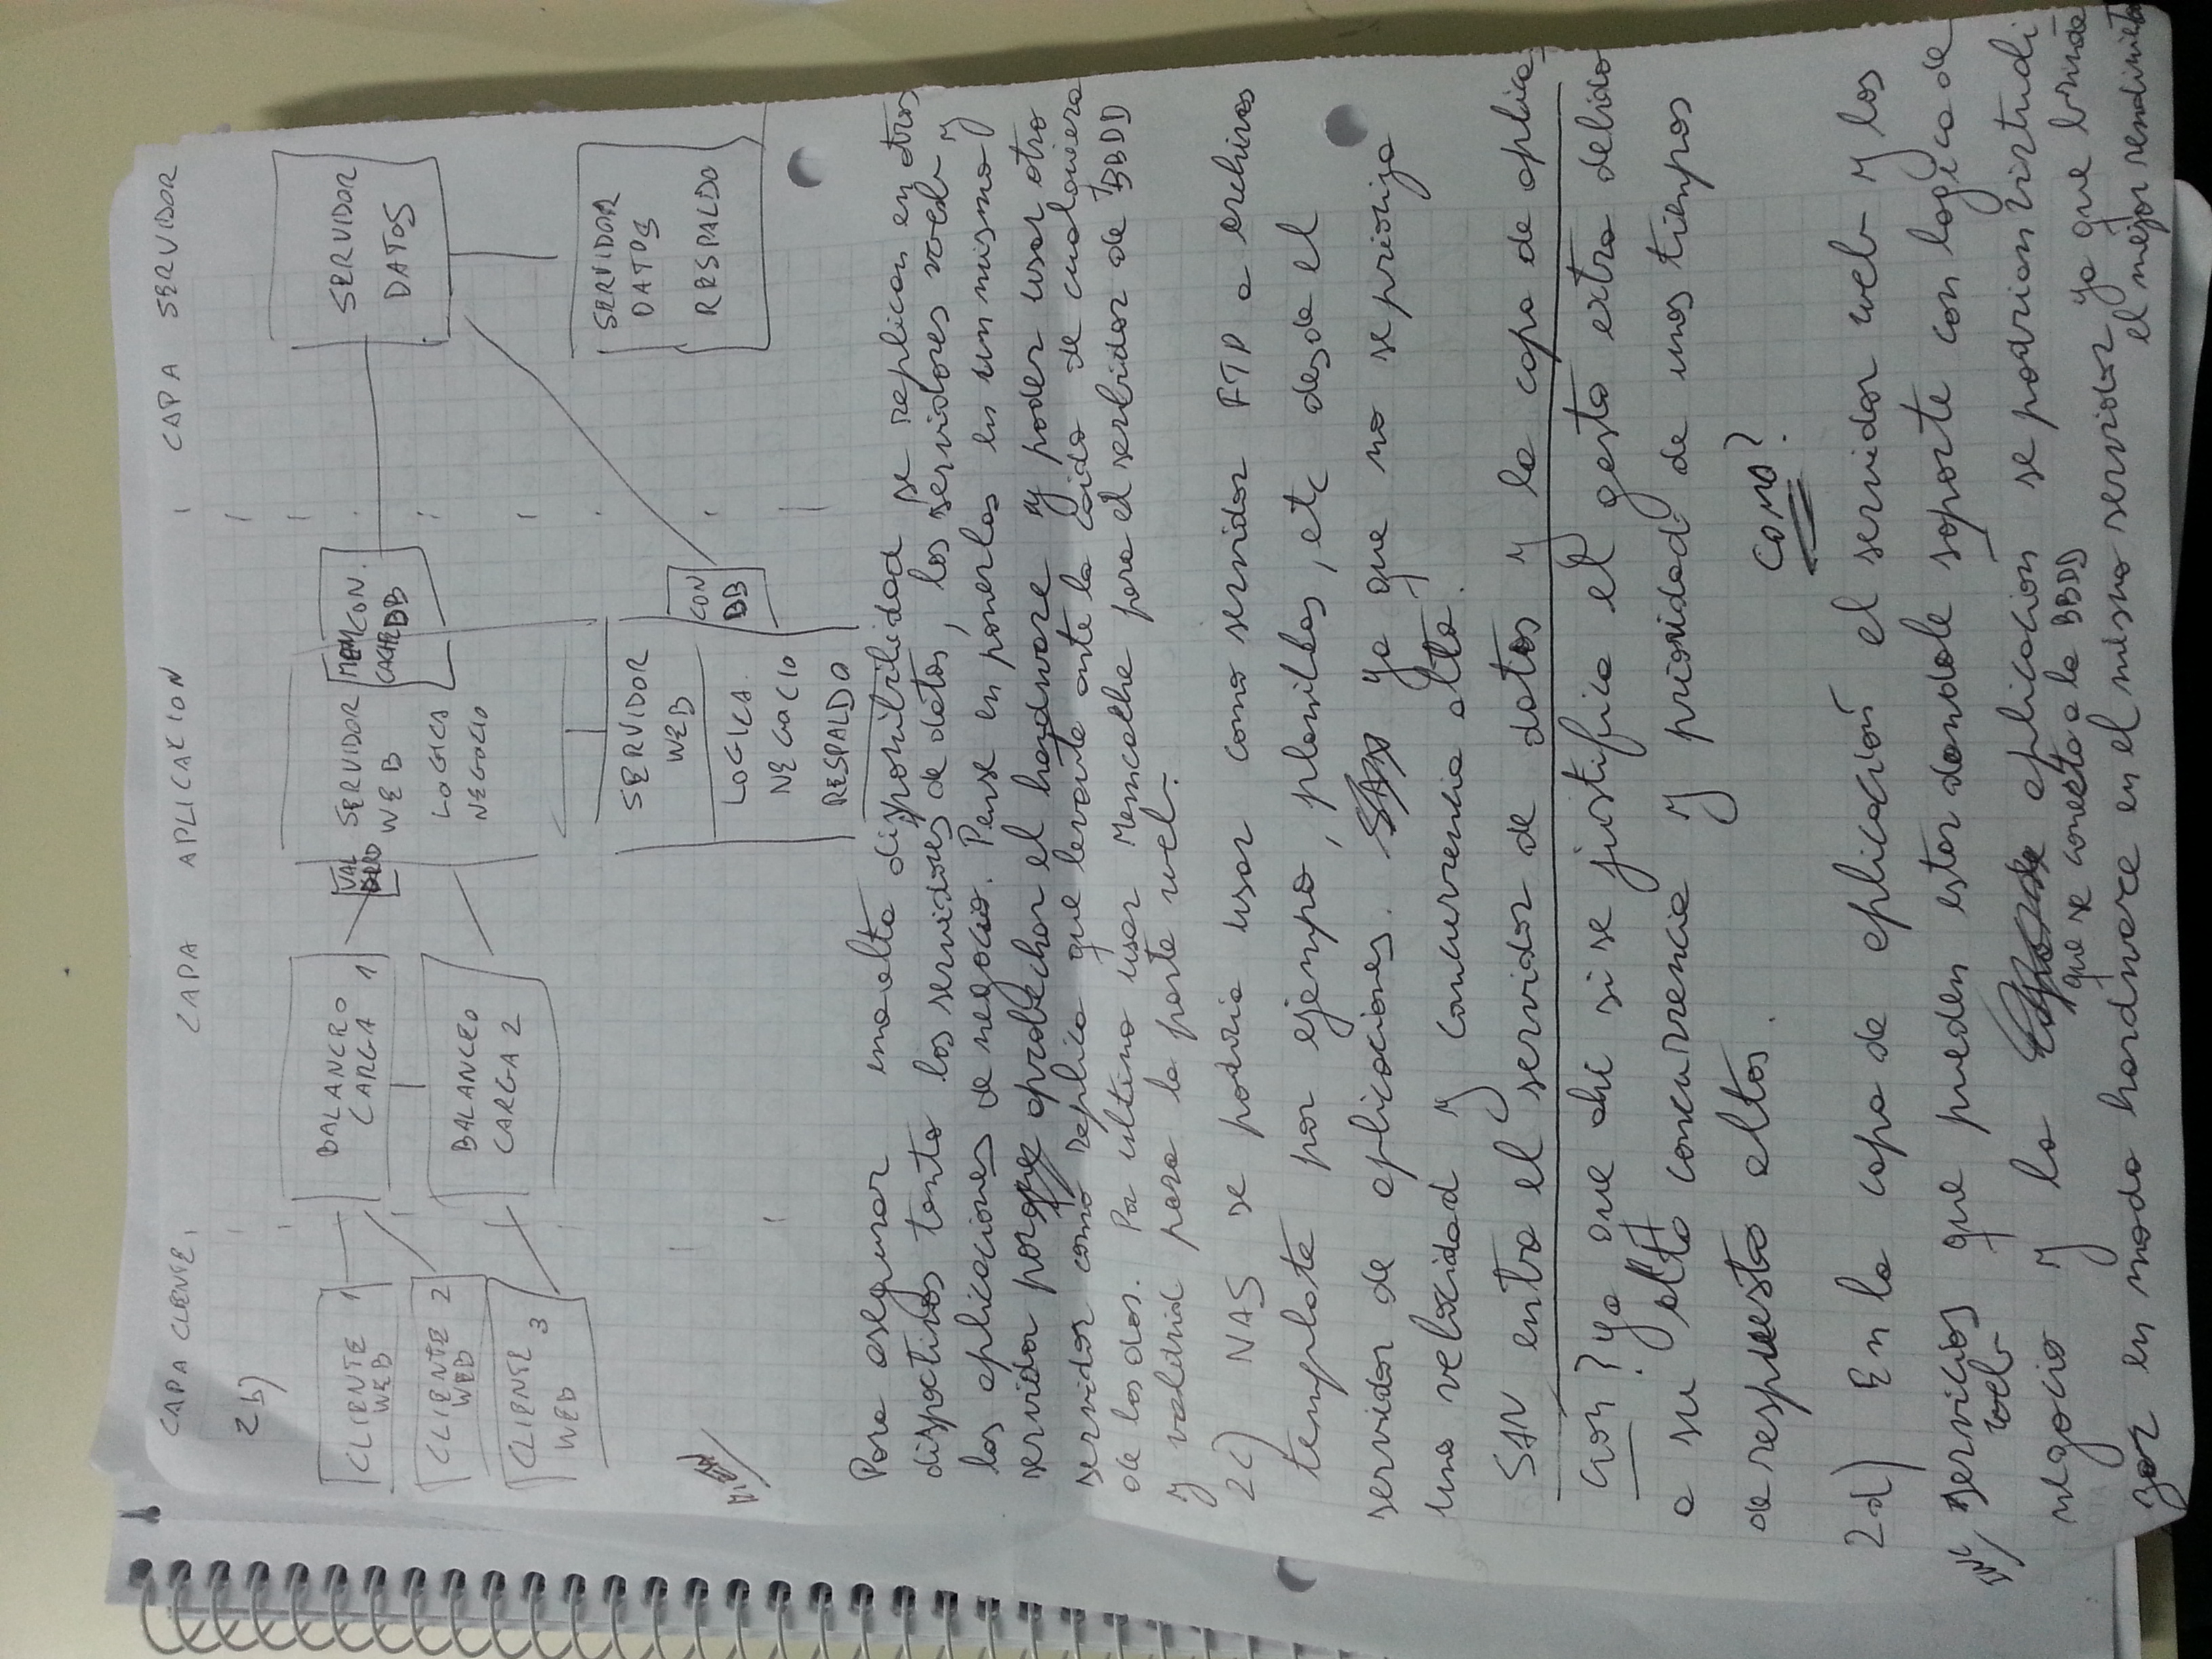 CAPA CLIENTE CAPA APLICACION CAPA SERVIDOR
2b)
CLIENTE 1
WEB
CLIENTE 2
WEB
CLIENTE 3
WEB
BALANCEO
CARGA 1
BALANCEO
CARGA 2
VAL
SERVIDOR
WEB
LOGICA
NEGOCIO
MEM
CACHE
CON.
BB
SERVIDOR
DATOS
SERVIDOR
WEB
LOGICA
NEGOCIO
RESPALDO
CON
BB
SERVIDOR
DATOS
RESPALDO
BIEN
Para asegurar una alta disponibilidad se replican en otros
dispositivos tanto los servidores de datos, los servidores web y
las aplicaciones de negocio. Pense en ponerlas en un mismo
servidor por aprobechar el hardware y poder usar otro
servidor como replica que levante ante la caida de cualquiera
de los dos. Por ultimo usar Memcache para el serbidor de BBDD
y para la parte web.
2c) NAS se podria usar como servidor FTP a archivos
template por ejempo, planillas, etc desde el
servidor de aplicaciones. SAN ya que no se prioriza
una velocidad y concurrencia alta.
SAN entre el servidor de datos y la capa de aplica
cion? ya que ahi si se justifica el gasto extra debido
a su alta concurrencia y prioridad de unos tiempos
de respuesta altos.
COMO?
2d) En la capa de aplicación el servidor web y los
INC
servicios que pueden estar dandole soporte con logica de
web
negocio y la aplicacion se podrian virtuali
que se conecta a la BBDD
zar en modo hardware en el mismo servidor ya que brinda
el mejor rendimiento